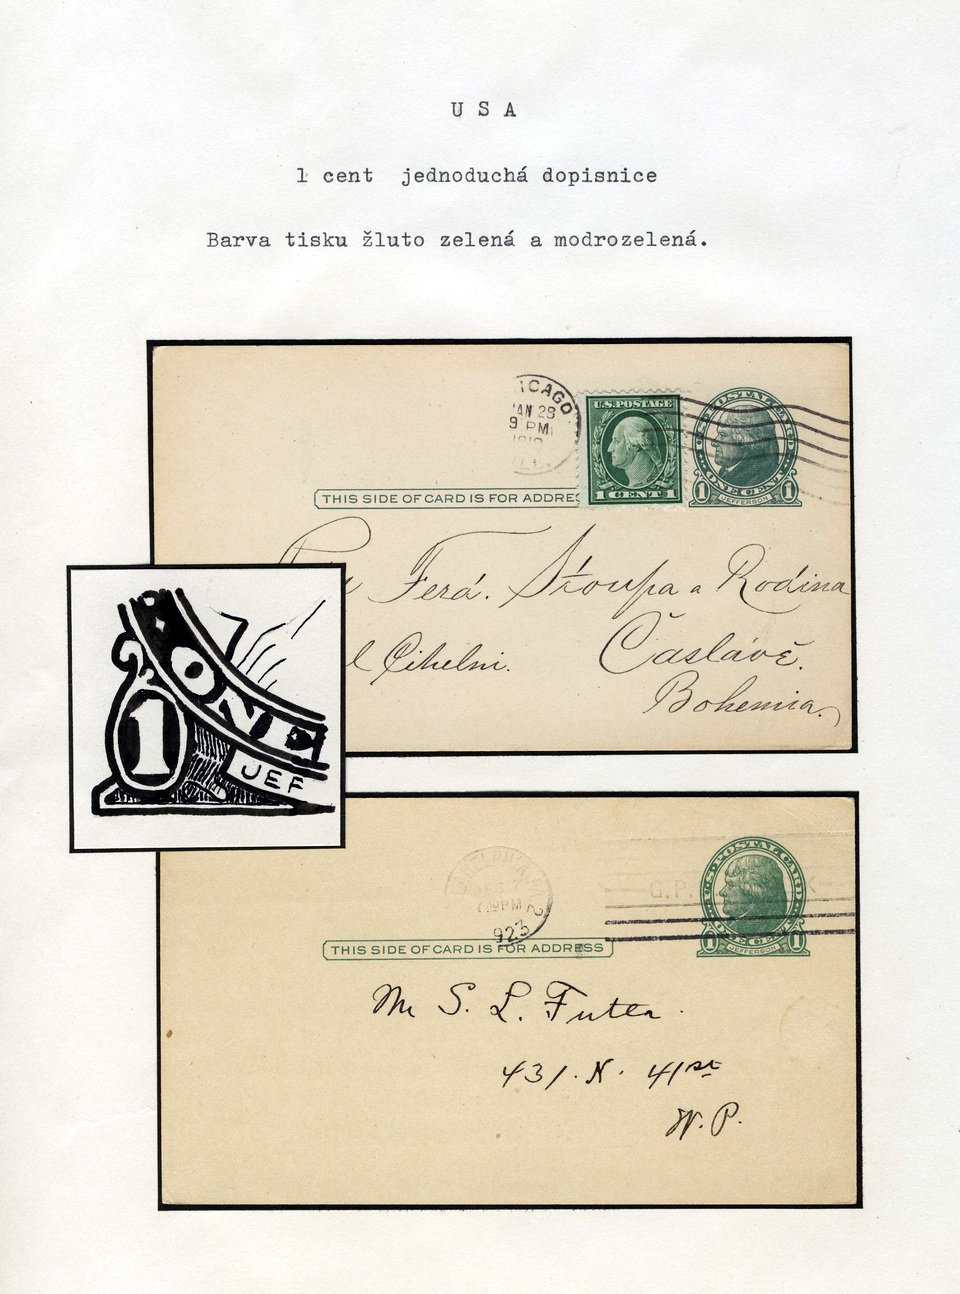 U S A
1 cent jednoduchá dopisnice
Barva tisku žluto zelená a modrozelená.
ICAGO
JAN 28
9 PM
ILL.
U.S. POSTAGE
1 CENT 1
U.S. POSTAL CARD
ONE CENT
1 JEFFERSON 1
THIS SIDE OF CARD IS FOR ADDRES
Ferd. Štoupa a Rodina
l Cihelni. Čáslávě.
Bohemia.
ONE
1
JEF
PM
1923
G.P.
U.S. POSTAL CARD
ONE CENT
1 JEFFERSON 1
THIS SIDE OF CARD IS FOR ADDRESS
Mr S. L. Futer.
431. N. 41st
W. P.